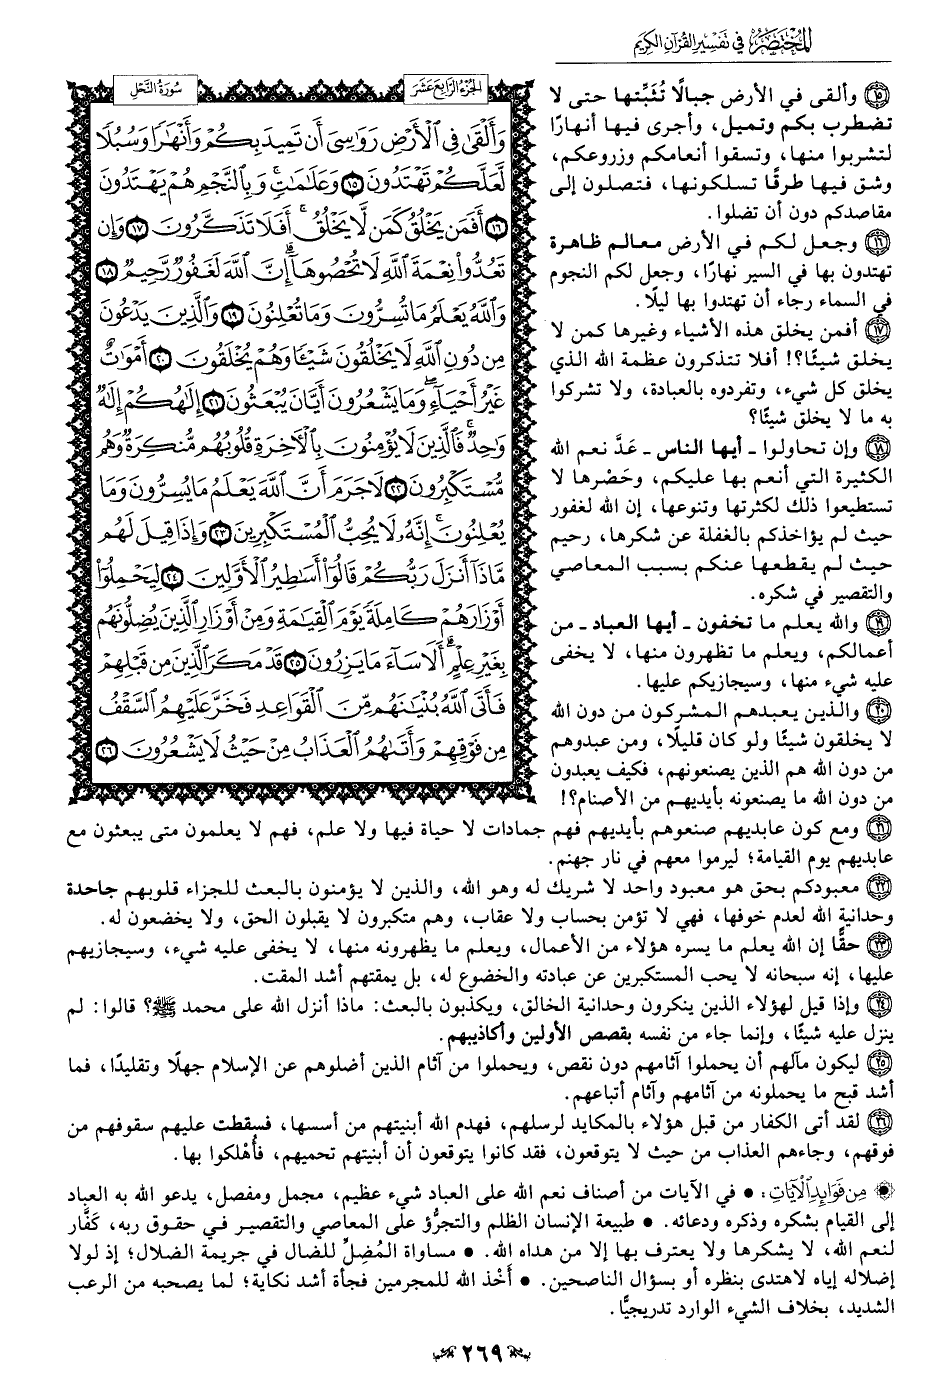 المختصر في تفسير القرآن الكريم
الجزء الرابع عشر
سورة النحل
وَأَلْقَىٰ فِي ٱلْأَرْضِ رَوَٰسِيَ أَن تَمِيدَ بِكُمْ وَأَنْهَٰرًا وَسُبُلًا
لَّعَلَّكُمْ تَهْتَدُونَ ١٥ وَعَلَٰمَٰتٍۚ وَبِٱلنَّجْمِ هُمْ يَهْتَدُونَ
١٦ أَفَمَن يَخْلُقُ كَمَن لَّا يَخْلُقُۚ أَفَلَا تَذَكَّرُونَ ١٧ وَإِن
تَعُدُّوا۟ نِعْمَةَ ٱللَّهِ لَا تُحْصُوهَآۗ إِنَّ ٱللَّهَ لَغَفُورٌ رَّحِيمٌ ١٨
وَٱللَّهُ يَعْلَمُ مَا تُسِرُّونَ وَمَا تُعْلِنُونَ ١٩ وَٱلَّذِينَ يَدْعُونَ
مِن دُونِ ٱللَّهِ لَا يَخْلُقُونَ شَيْـًٔا وَهُمْ يُخْلَقُونَ ٢٠ أَمْوَٰتٌ
غَيْرُ أَحْيَآءٍۖ وَمَا يَشْعُرُونَ أَيَّانَ يُبْعَثُونَ ٢١ إِلَٰهُكُمْ إِلَٰهٌ
وَٰحِدٌۚ فَٱلَّذِينَ لَا يُؤْمِنُونَ بِٱلْأَخِرَةِ قُلُوبُهُم مُّنكِرَةٌ وَهُم
مُّسْتَكْبِرُونَ ٢٢ لَا جَرَمَ أَنَّ ٱللَّهَ يَعْلَمُ مَا يُسِرُّونَ وَمَا
يُعْلِنُونَۚ إِنَّهُۥ لَا يُحِبُّ ٱلْمُسْتَكْبِرِينَ ٢٣ وَإِذَا قِيلَ لَهُم
مَّاذَآ أَنزَلَ رَبُّكُمْ قَالُوٓا۟ أَسَٰطِيرُ ٱلْأَوَّلِينَ ٢٤ لِيَحْمِلُوٓا۟
أَوْزَارَهُمْ كَامِلَةً يَوْمَ ٱلْقِيَٰمَةِ وَمِنْ أَوْزَارِ ٱلَّذِينَ يُضِلُّونَهُم
بِغَيْرِ عِلْمٍۗ أَلَا سَآءَ مَا يَزِرُونَ ٢٥ قَدْ مَكَرَ ٱلَّذِينَ مِن قَبْلِهِمْ
فَأَتَى ٱللَّهُ بُنْيَٰنَهُم مِّنَ ٱلْقَوَاعِدِ فَخَرَّ عَلَيْهِمُ ٱلسَّقْفُ
مِن فَوْقِهِمْ وَأَتَىٰهُمُ ٱلْعَذَابُ مِنْ حَيْثُ لَا يَشْعُرُونَ ٢٦
١٥ وألقى في الأرض جبالًا تُثَبِّتها حتى لا
تضطرب بكم وتميل، وأجرى فيها أنهارًا
لتشربوا منها، وتسقوا أنعامكم وزروعكم،
وشق فيها طرقًا تسلكونها، فتصلون إلى
مقاصدكم دون أن تضلوا.
١٦ وجعل لكم في الأرض معالم ظاهرة
تهتدون بها في السير نهارًا، وجعل لكم النجوم
في السماء رجاء أن تهتدوا بها ليلًا.
١٧ أفمن يخلق هذه الأشياء وغيرها كمن لا
يخلق شيئًا؟! أفلا تتذكرون عظمة الله الذي
يخلق كل شيء، وتفردوه بالعبادة، ولا تشركوا
به ما لا يخلق شيئًا؟
١٨ وإن تحاولوا - أيها الناس - عَدَّ نعم الله
الكثيرة التي أنعم بها عليكم، وحَصْرها لا
تستطيعوا ذلك لكثرتها وتنوعها، إن الله لغفور
حيث لم يؤاخذكم بالغفلة عن شكرها، رحيم
حيث لم يقطعها عنكم بسبب المعاصي
والتقصير في شكره.
١٩ والله يعلم ما تخفون - أيها العباد - من
أعمالكم، ويعلم ما تظهرون منها، لا يخفى
عليه شيء منها، وسيجازيكم عليها.
٢٠ والذين يعبدهم المشركون من دون الله
لا يخلقون شيئًا ولو كان قليلًا، ومن عبدوهم
من دون الله هم الذين يصنعونهم، فكيف يعبدون
من دون الله ما يصنعونه بأيديهم من الأصنام؟!
٢١ ومع كون عابديهم صنعوهم بأيديهم فهم جمادات لا حياة فيها ولا علم، فهم لا يعلمون متى يبعثون مع
عابديهم يوم القيامة؛ ليرموا معهم في نار جهنم.
٢٢ معبودكم بحق هو معبود واحد لا شريك له وهو الله، والذين لا يؤمنون بالبعث للجزاء قلوبهم جاحدة
وحدانية الله لعدم خوفها، فهي لا تؤمن بحساب ولا عقاب، وهم متكبرون لا يقبلون الحق، ولا يخضعون له.
٢٣ حقًّا إن الله يعلم ما يسره هؤلاء من الأعمال، ويعلم ما يظهرونه منها، لا يخفى عليه شيء، وسيجازيهم
عليها، إنه سبحانه لا يحب المستكبرين عن عبادته والخضوع له، بل يمقتهم أشد المقت.
٢٤ وإذا قيل لهؤلاء الذين ينكرون وحدانية الخالق، ويكذبون بالبعث: ماذا أنزل الله على محمد ﷺ؟ قالوا: لم
ينزل عليه شيئًا، وإنما جاء من نفسه بقصص الأولين وأكاذيبهم.
٢٥ ليكون مآلهم أن يحملوا آثامهم دون نقص، ويحملوا من آثام الذين أضلوهم عن الإسلام جهلًا وتقليدًا، فما
أشد قبح ما يحملونه من آثامهم وآثام أتباعهم.
٢٦ لقد أتى الكفار من قبل هؤلاء بالمكايد لرسلهم، فهدم الله أبنيتهم من أسسها، فسقطت عليهم سقوفهم من
فوقهم، وجاءهم العذاب من حيث لا يتوقعون، فقد كانوا يتوقعون أن أبنيتهم تحميهم، فأُهْلكوا بها.
من فوائد الآيات: • في الآيات من أصناف نعم الله على العباد شيء عظيم، مجمل ومفصل، يدعو الله به العباد
إلى القيام بشكره وذكره ودعائه. • طبيعة الإنسان الظلم والتجرُّؤ على المعاصي والتقصير في حقوق ربه، كَفَّار
لنعم الله، لا يشكرها ولا يعترف بها إلا من هداه الله. • مساواة المُضِلِّ للضال في جريمة الضلال؛ إذ لولا
إضلاله إياه لاهتدى بنظره أو بسؤال الناصحين. • أَخْذ الله للمجرمين فجأة أشد نكاية؛ لما يصحبه من الرعب
الشديد، بخلاف الشيء الوارد تدريجيًّا.
٢٦٩